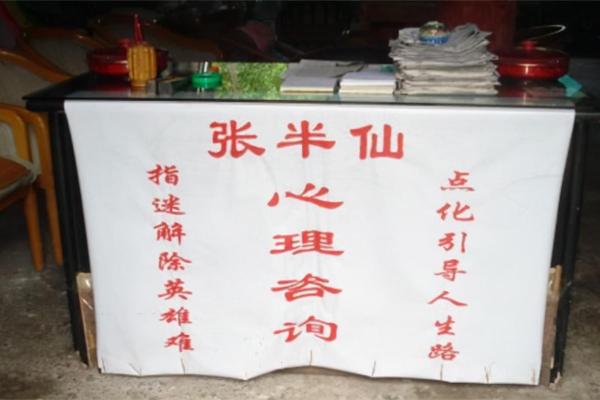 张半仙
心理咨询
指迷解除英雄难
点化引导人生路